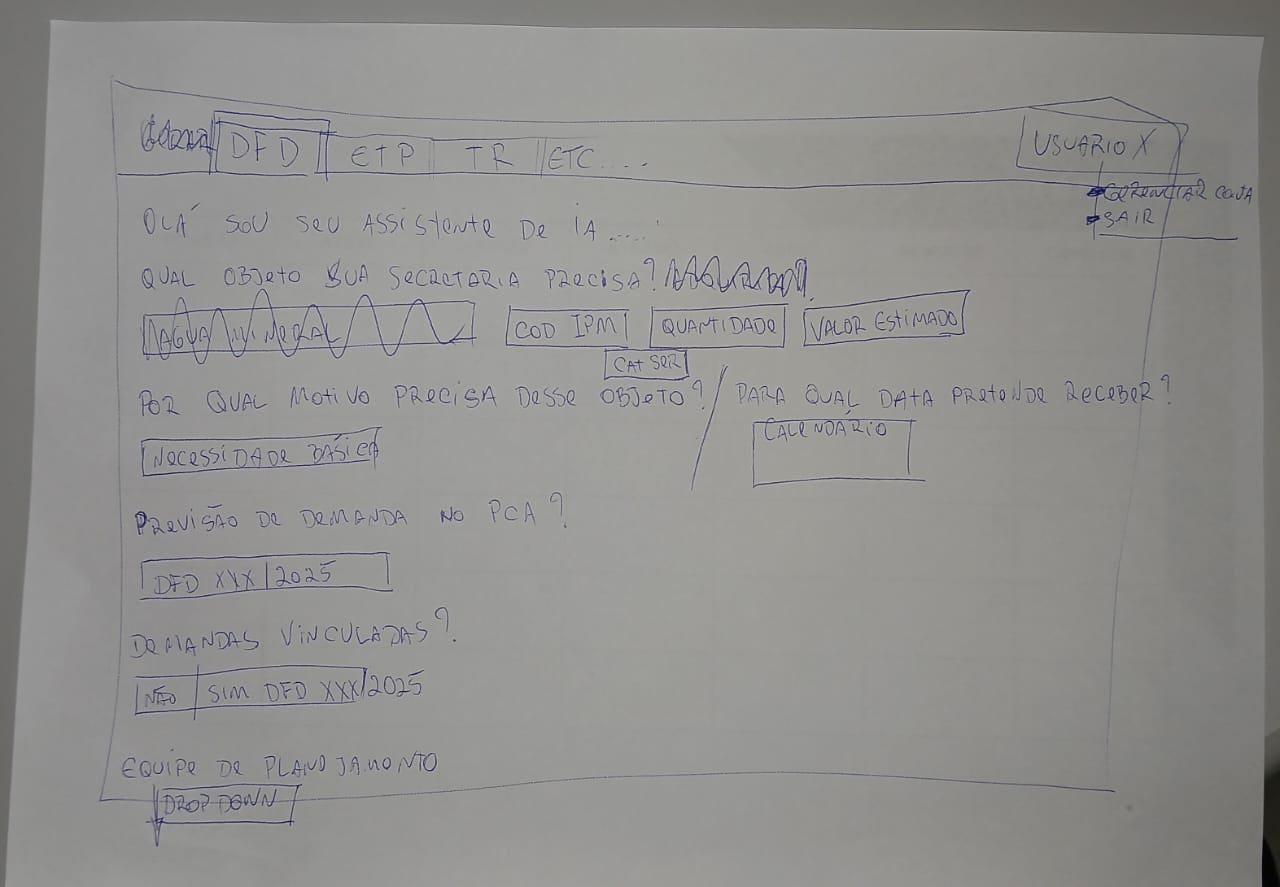 DFD ETP TR ETC.... USUARIO X
GERENCIAR CONTA
SAIR
OLÁ SOU SEU ASSISTENTE DE IA....
QUAL OBJETO SUA SECRETARIA PRECISA?
AGUA MINERAL COD IPM QUANTIDADE VALOR ESTIMADO
CAT SER
POR QUAL MOTIVO PRECISA DESSE OBJETO? / PARA QUAL DATA PRETENDE RECEBER?
NECESSIDADE BÁSICA CALENDÁRIO
PREVISÃO DE DEMANDA NO PCA?
DFD XXX/2025
DEMANDAS VINCULADAS?
NÃO SIM DFD XXX/2025
EQUIPE DE PLANEJAMENTO
DROPDOWN